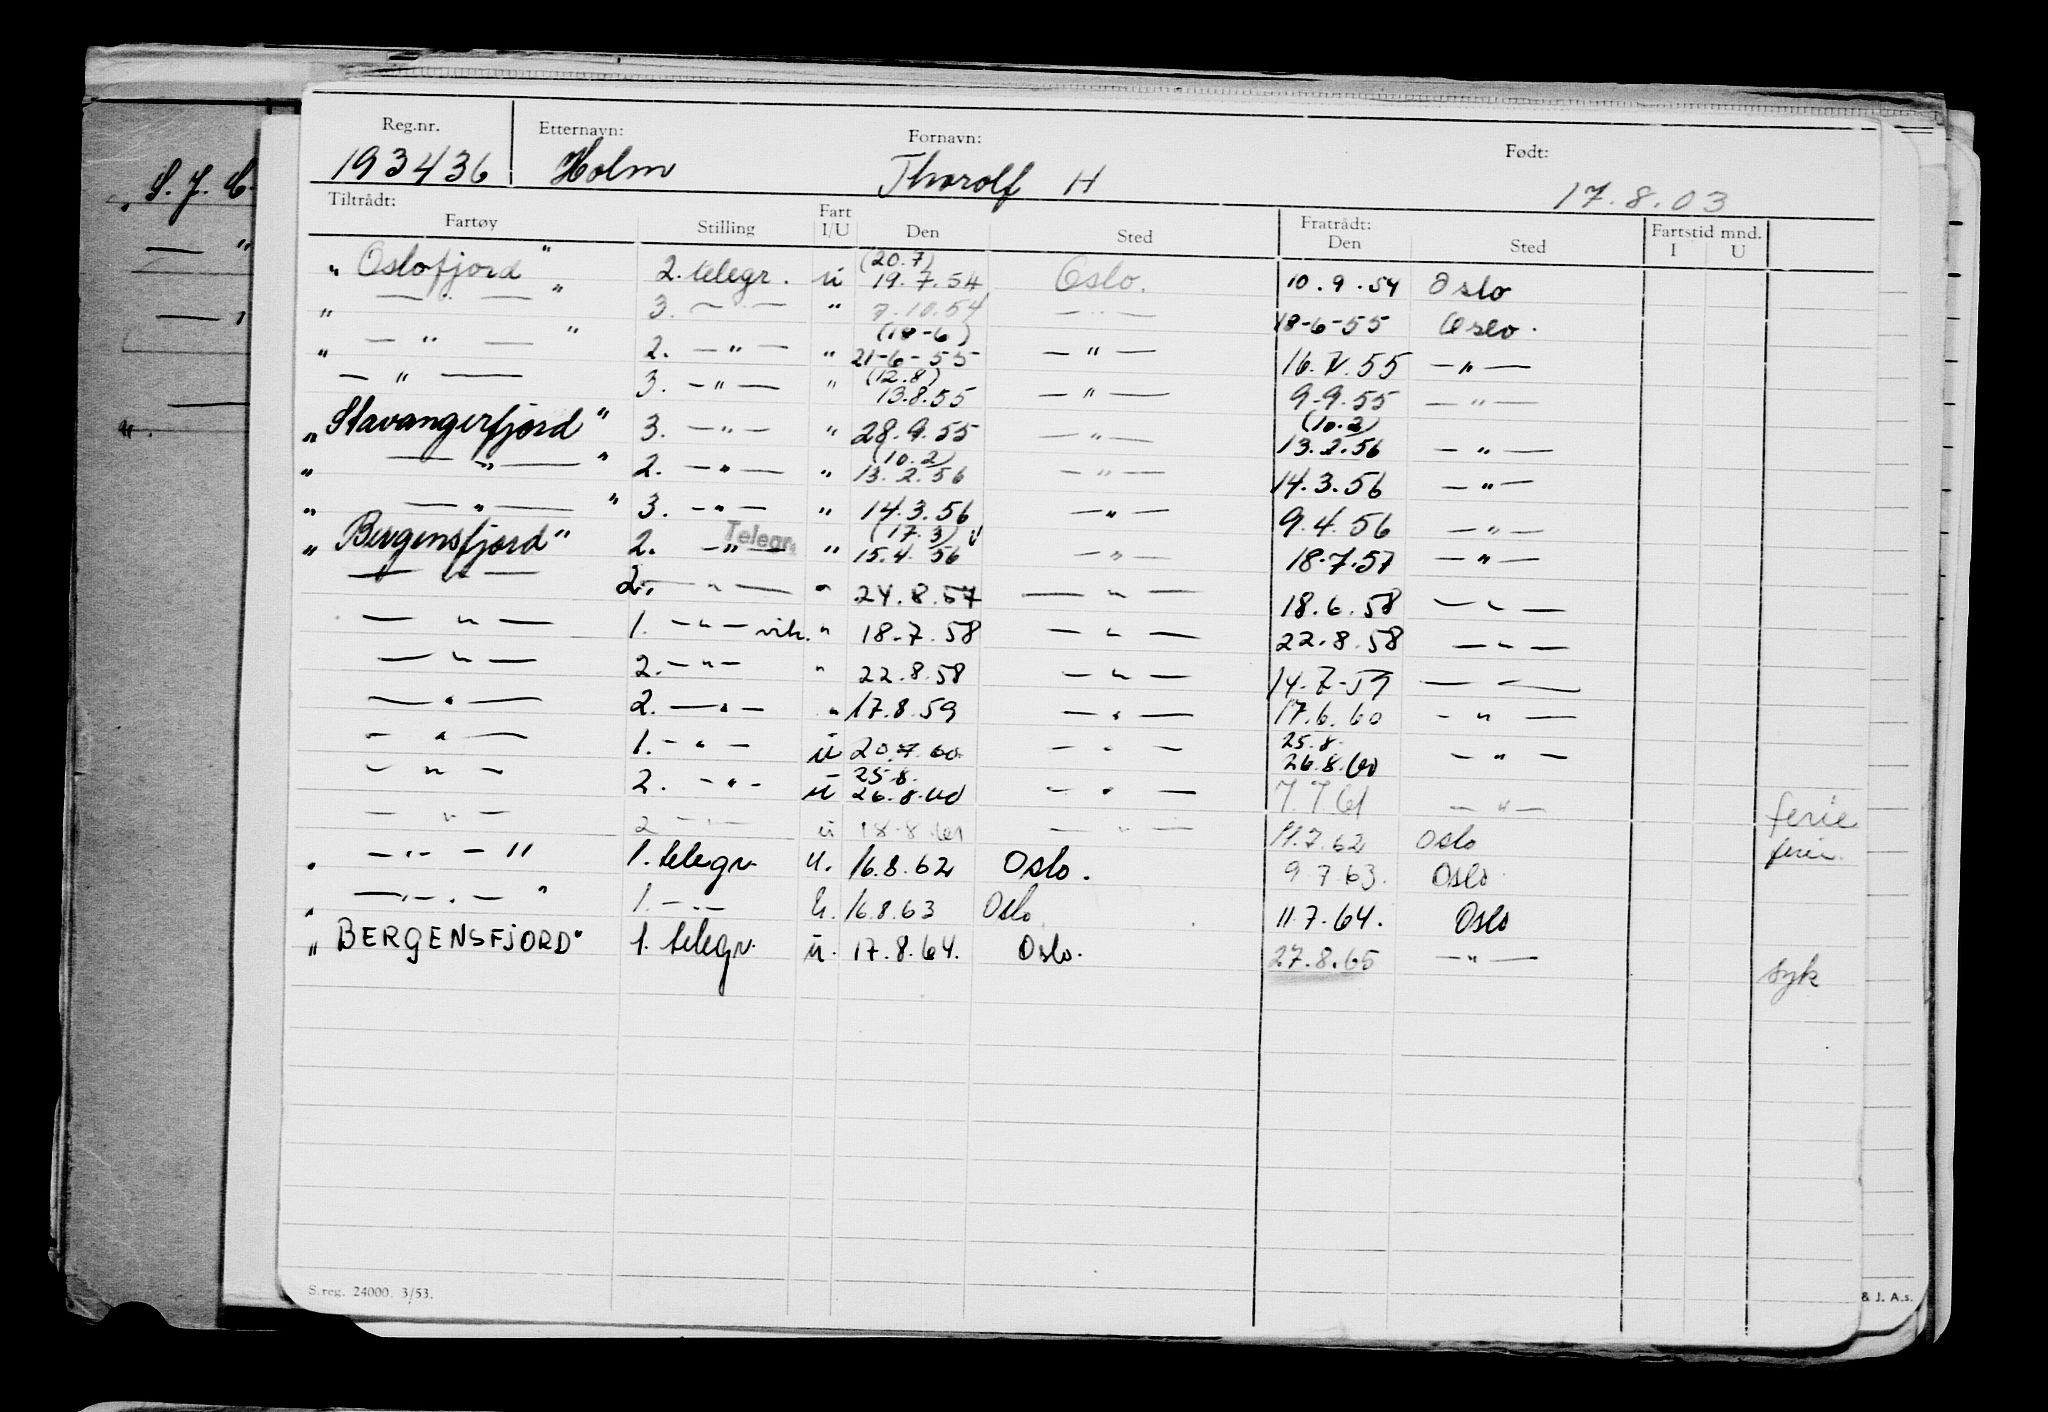 S. J. C.
— "
— "
—
".
Reg.nr. Etternavn: Fornavn: Født:
193436 Holm Thorolf H 17.8.03
Tiltrådt: Fartøy Stilling Fart I/U Den Sted Fratrådt: Den Sted Fartstid mnd. I U
"Oslofjord" 2. telegr. u (20.7) 19.7.54 Oslo. 10.9.54 Oslo
" — " — " 3. — " — " 7.10.54 — " — 18-6-55 Oslo.
" — " — " 2. — " — " (18-6) 21-6-55 — " — 16.7.55 — " —
— " — 3. — " — " (12.8) 13.8.55 — " — 9-9.55 — " —
"Stavangerfjord" 3. — " — " 28.9.55 — " — (10.2) 13.2.56 — " —
" — " — " 2. — " — " (10.2) 13.2.56 — " — 14.3.56 — " —
" — " — " 3. — " — " 14.3.56 — " — 9.4.56 — " —
"Bergensfjord" 2. — " — Telegr. " (17.3) 15.4.56 — " — 18.7.57 — " —
— " — 2. — " — " 24.8.57 — " — 18.6.58 — " —
— " — 1. — " — vik. " 18.7.58 — " — 22.8.58 — " —
— " — 2. — " — " 22.8.58 — " — 14.7-59 — " —
— " — 2. — " — " 17.8.59 — " — 17.6.60 — " —
— " — 1. — " — u 20.7.60 — " — 25.8. 26.8.60 — " —
— " — 2. — " — u 25.8. 26.8.60 — " — 7.7.61 — " — ferie
— " — 2 — " — u 18.8.61 — " — 11.7.62 Oslo ferie.
" — " — " 1. telegr. u. 16.8.62 Oslo. 9.7.63. Oslo
" — " — " 1. — " — u. 16.8.63 Oslo. 11.7.64. Oslo
"BERGENSFJORD" 1. telegr. u. 17.8.64. Oslo. 27.8.65 — " — syk
S.reg. 24000. 3/53.
& J. A.s.